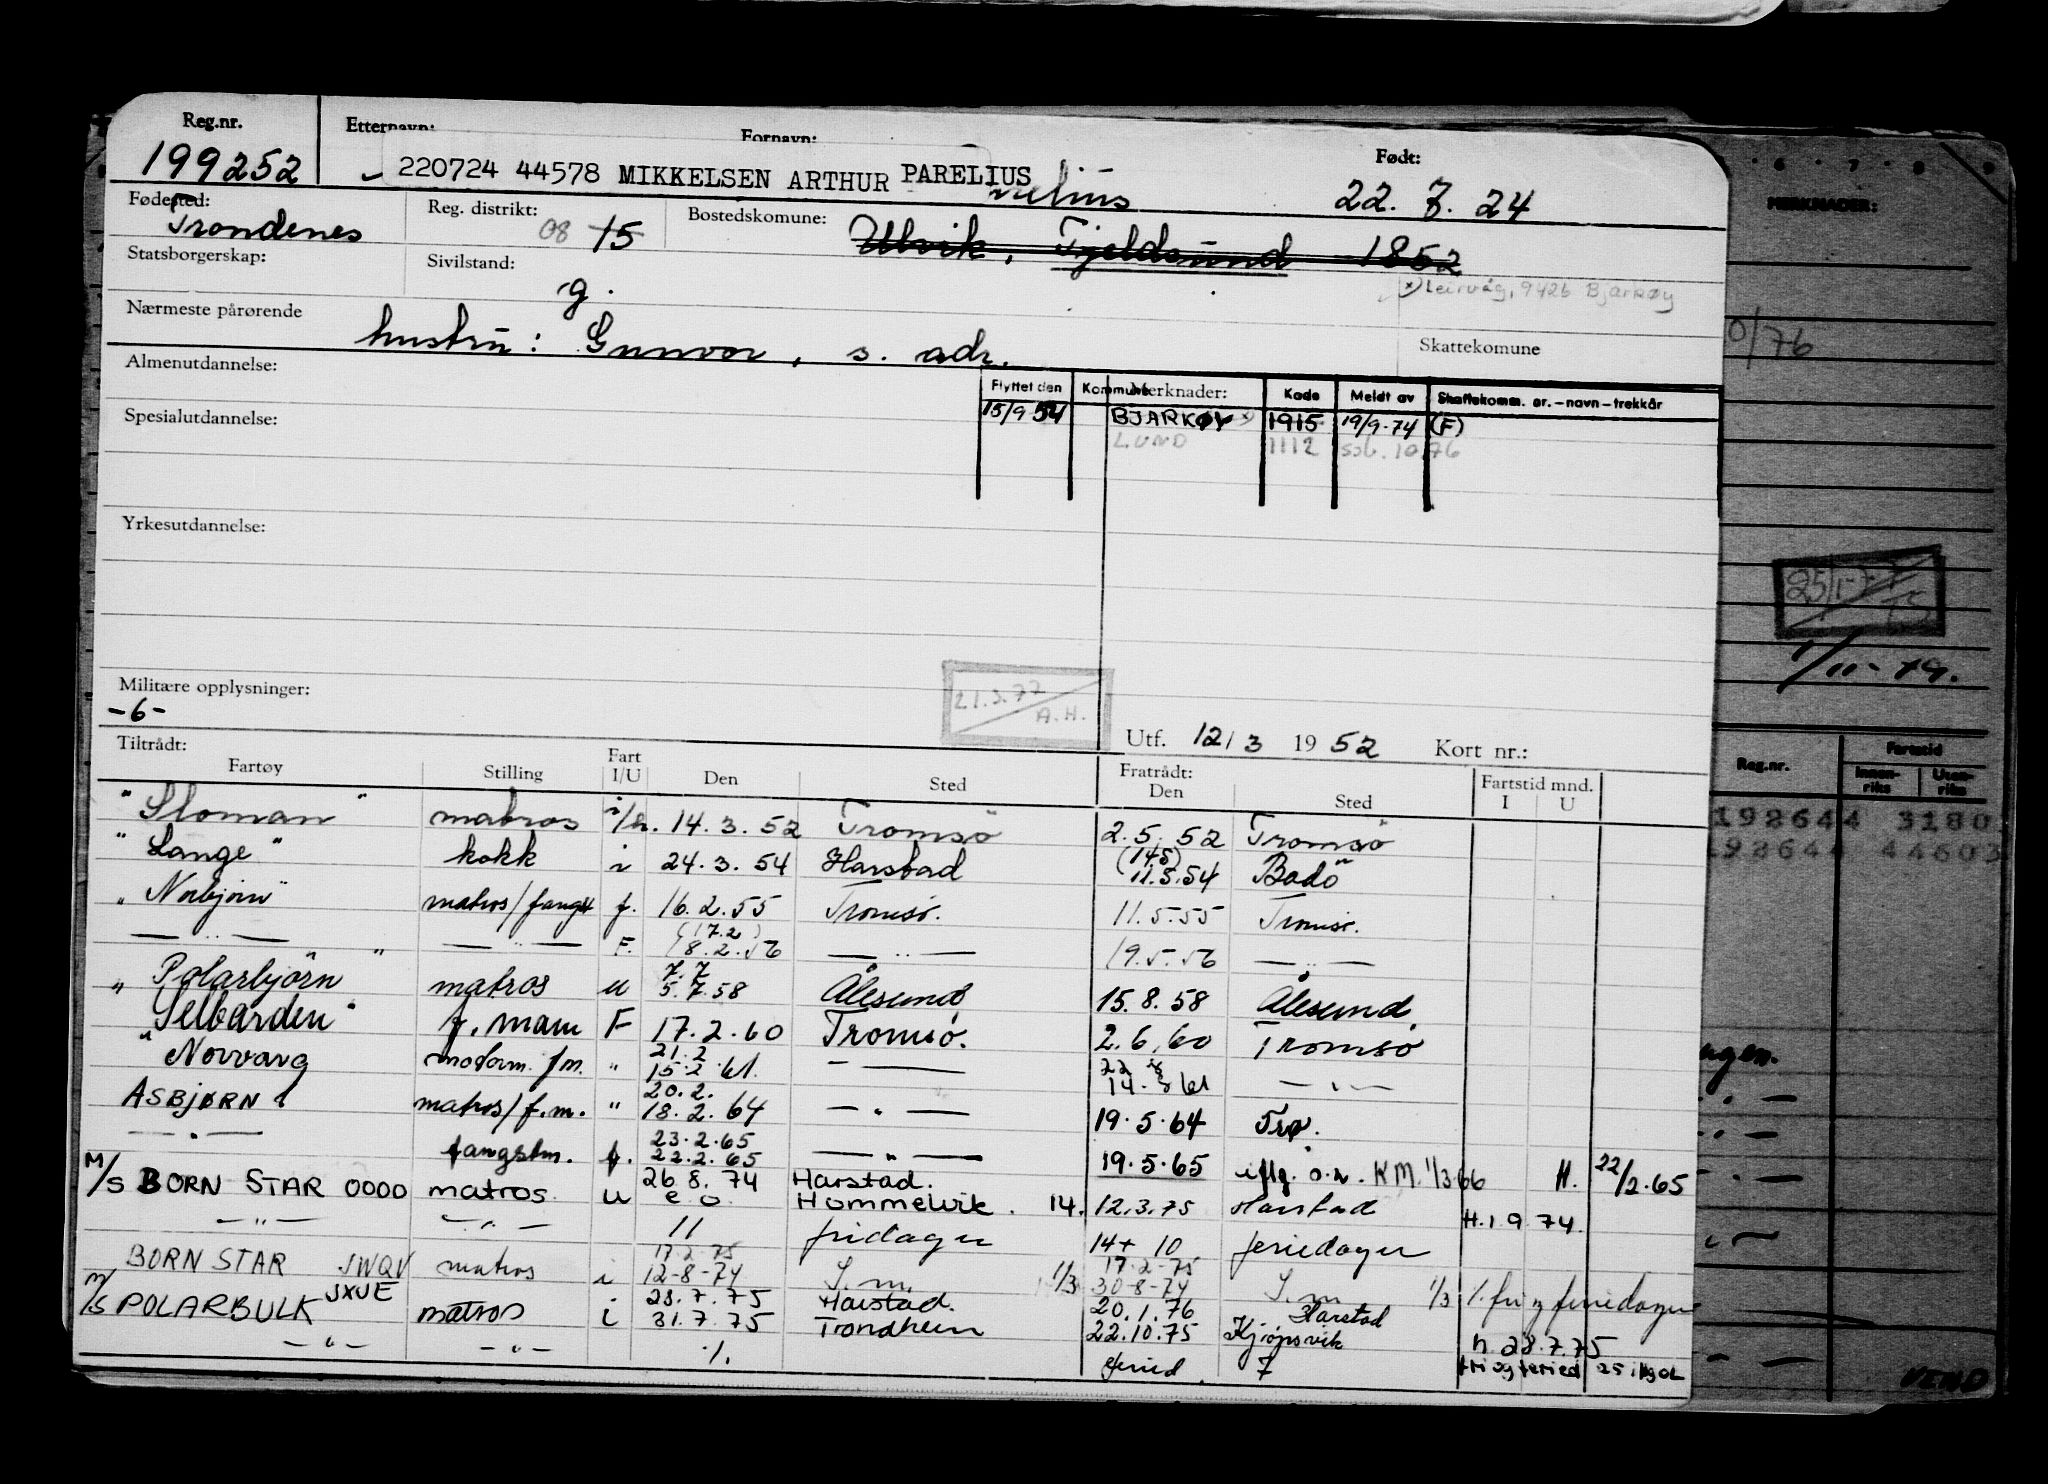 Reg.nr. Etternavn: Fornavn: Født:
199252 220724 44578 MIKKELSEN ARTHUR PARELIUS 22. 7. 24
Fødested: Reg. distrikt: Bostedskomune:
Trondenes 08 15 Ulvik, Fjeldsund 1852
Statsborgerskap: Sivilstand:
g.
x) Leirvåg, 9426 Bjarkøy
Nærmeste pårørende
hustru: Gunvor, s. adr.
Skattekomune
Almenutdannelse:
Flyttet den Kommune Merknader: Kode Meldt av Skattekomm. nr. - navn - trekkår
15/9 54 BJARKØY x) 1915 19/9-74 (F)
LUND 1112 ssb. 10.76
Spesialutdannelse:
Yrkesutdannelse:
Militære opplysninger:
-6-
21.3.77
A.H.
Utf. 12/3 1952 Kort nr.:
Tiltrådt: Fratrådt:
Fartøy Stilling Fart I/U Den Sted Den Sted Fartstid mnd. I U
"Sloman" matros 14.3.52 Tromsö 2.5.52 Tromsö
"Lange" kokk i 24.3.54 Harstad (14.5) 11.5.54 Bodö
"Norbjørn" matros/fangst f. 16.2.55 Tromsø. 11.5.55 Tromsø.
— " — — " — F. (17.2) 18.2.56 — " — 19.5.56 — " —
"Polarbjörn" matros u 7.7 5.7.58 Ålesund 15.8.58 Ålesund
"Selbarden" f. mann F 17.2.60 Tromsø. 2.6.60 Tromsø
"Norvarg motorm. fm. " 21.2 15.2.61. — 22 14. 61 — " —
ASBJØRN matros/f.m. " 20.2. 18.2.64 — " — 19.5.64 Trø.
— " — fangstm. f. 23.2.65 22.2.65 — " — 19.5.65 iflg. o.r. KM. 1/3 66 H. 22/2.65
M/S BORN STAR 0000 matros u 26.8.74 Harstad. Hommelvik. 14. 12.3.75 Harstad H.1.9.74.
— " — — " — 11 fridager 14 + 10 feriedager
BORN STAR JWQV matros i 17.2.75 12-8-74 S.m. 1/3 17.2.75 30-8-74 S.m. 1/3 %. fri og feriedager
M/S POLARBULK JXUE matros i 28.7.75 Harstad. 31.7.75 Trondheim 20.1.76 Harstad 22.10.75 Kjøpsvik h 28.7.75
— " — — " — %. feried. 7 fri og feried 25
MERKNADER:
0/76
25/1-77
TS
1/11-74.
Reg.nr. Fartstid
Innenriks Utenriks
192644 3180
192644 44603
agen.
VEND